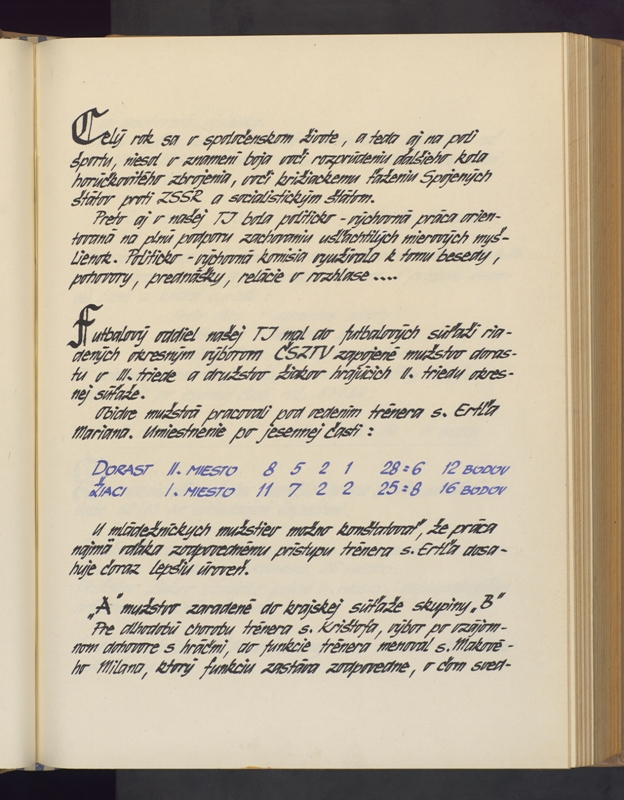 Celý rok sa v spoločenskom živote, a teda aj na poli
športu, niesol v znamení boja voči rozprúdeniu ďalšieho kola
horúčkovitého zbrojenia, voči križiackemu ťaženiu Spojených
štátov proti ZSSR a socialistickým štátom.
Preto aj v našej TJ bola politicko-výchovná práca orien-
tovaná na plnú podporu zachovaniu ušľachtilých mierových myš-
lienok. Politicko-výchovná komisia využívala k tomu besedy,
pohovory, prednášky, relácie v rozhlase....
Futbalový oddiel našej TJ mal do futbalových súťaží ria-
dených okresným výborom ČSZTV zapojené mužstvo doras-
tu v III. triede a družstvo žiakov hrajúcich II. triedu okres-
nej súťaže.
Obidve mužstvá pracovali pod vedením trénera s. Ertľa
Mariana. Umiestnenie po jesennej časti :
DORAST II. MIESTO 8 5 2 1 28:6 12 BODOV
ŽIACI I. MIESTO 11 7 2 2 25:8 16 BODOV
U mládežníckych mužstiev možno konštatovať, že práca
najmä vďaka zodpovednému prístupu trénera s. Ertľa dosa-
huje čoraz lepšiu úroveň.
„A" mužstvo zaradené do krajskej súťaže skupiny „B"
Pre dlhodobú chorobu trénera s. Krištofa, výbor po vzájom-
nom dohovore s hráčmi, do funkcie trénera menoval s. Makové-
ho Milana, ktorý funkciu zastáva zodpovedne, o čom sved-